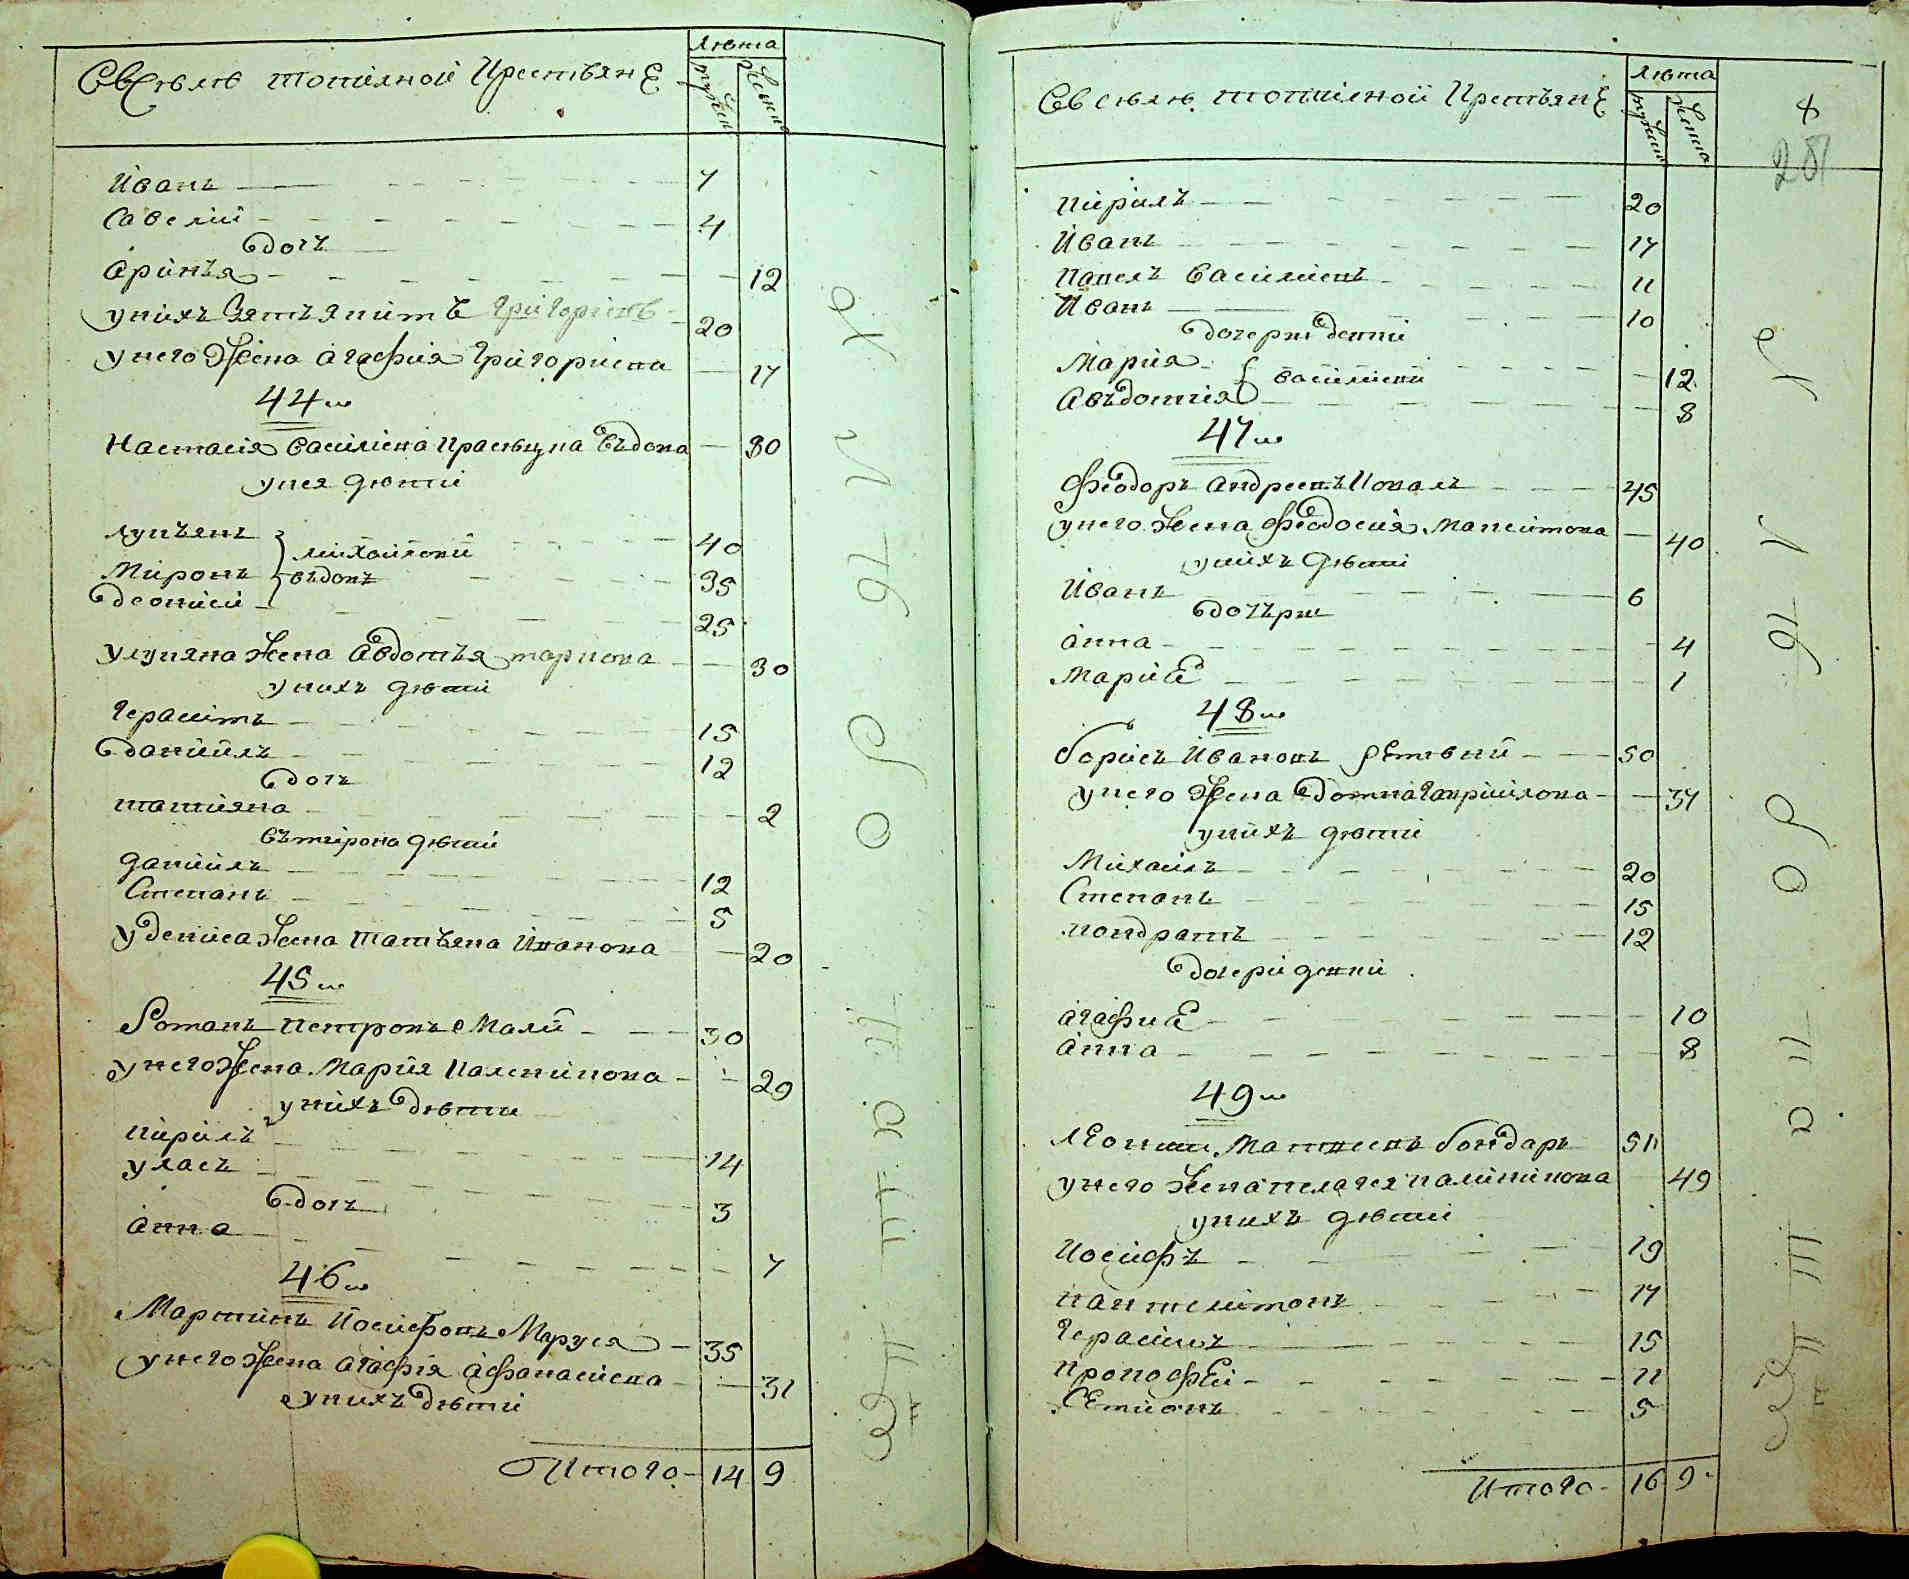 Въ селѣ Топильной Крестьяне
Лѣта
мужен
женск
Иванъ 7
Савелий 4
дочь
Аринья 12
у нихъ Зять Якимъ Григориевъ 20
у него жена Агафия Григориева 17
44й
Настасия Василиева Кравцука вдова 80
у нея дѣти
Лукъянъ 40
Михайловы
Миронъ вдовъ 35
Деониси 25
у Лукяна жена Авдотья Маркова 30
у нихъ дѣти
Герасимъ 15
Даниилъ 12
дочь
Татияна 2
въ Мирона дѣти
Даниилъ 12
Степанъ 5
у Дениса жена Татьяна Иванова 20
45й
Романъ Петровъ Малы 30
у него жена Мария Каленикова 29
у нихъ дѣти
Кирилъ 14
Уласъ 3
дочь
Анна 7
46й
Мартинъ Иосифовъ Маруся 35
у него жена Агафия Афанасиева 31
у нихъ дѣти
Итого 14 9
Въ селѣ Топильной Крестьяне
Лѣта
мужен
женск
Кирилъ 20
Иванъ 17
Павелъ Василиевъ 11
Иванъ 10
дочери девки
Мария 12
Василиевы
Авъдотия 8
47й
Феодоръ Андреевъ Коваль 45
у него жена Феодосия Максимова 40
у нихъ дѣти
Иванъ 6
дочъри
Анна 4
Марие 1
48й
Борисъ Ивановъ 50
у него жена Домна Гавриилова 37
у нихъ дѣти
Михаилъ 20
Степанъ 15
Кондратъ 12
дочери девки
Агафие 10
Анна 8
49й
Леонти Матвеевъ Бондаръ 51
у него жена Пелагея Калиникова 49
у нихъ дѣти
Иосифъ 19
Пантелимонъ 17
Герасимъ 15
Прокофей 11
Семионъ 5
Итого 16 9